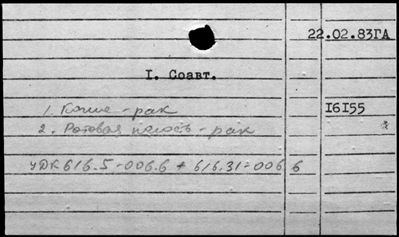 22.02.83ГА
I. Соавт.
1. Кожа - рак
I6I55
2. Ротовая полость - рак
УДК 616.5-006.6 + 616.31-006.6